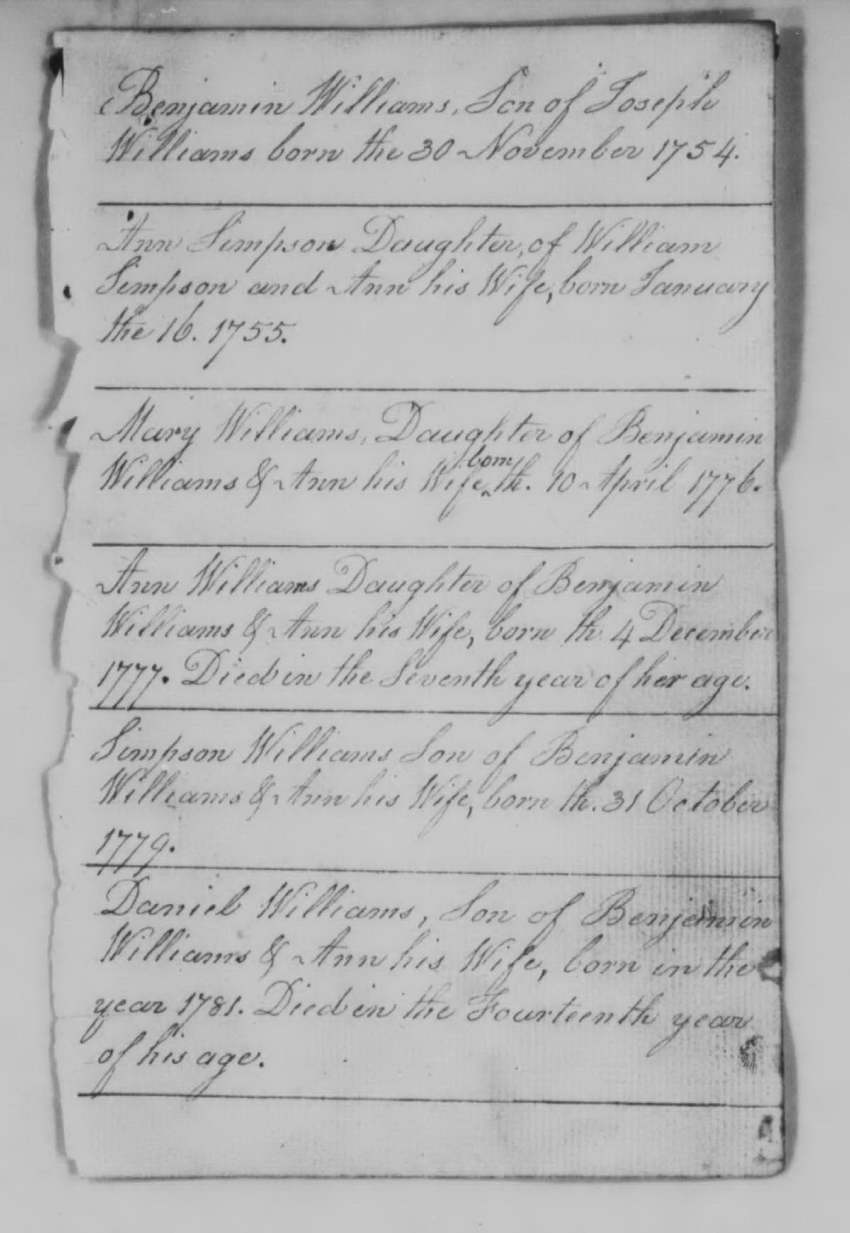 Benjamin Williams, Son of Joseph
Williams born the 30 November 1754.
Ann Simpson Daughter, of William
Simpson and Ann his Wife, born January
the 16. 1755.
Mary Williams, Daughter of Benjamin
born
Williams & Ann his Wife ^ th. 10 April 1776.
Ann Williams Daughter of Benjamin
Williams & Ann his Wife, born th 4 December
1777. Died in the Seventh year of her age.
Simpson Williams Son of Benjamin
Williams & Ann his Wife, born th. 31 October
1779.
Daniel Williams, Son of Benjamin
Williams & Ann his Wife, born in the
year 1781. Died in the Fourteenth year
of his age.